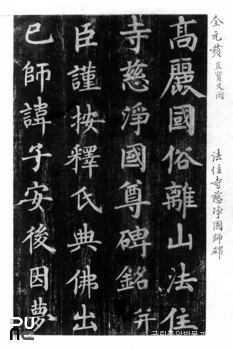 全元發 直寶文閣
法住寺慈淨國師碑
高麗國俗離山法住
寺慈淨國尊碑銘 幷
臣謹按釋氏典佛出
已師諱子安後因夢